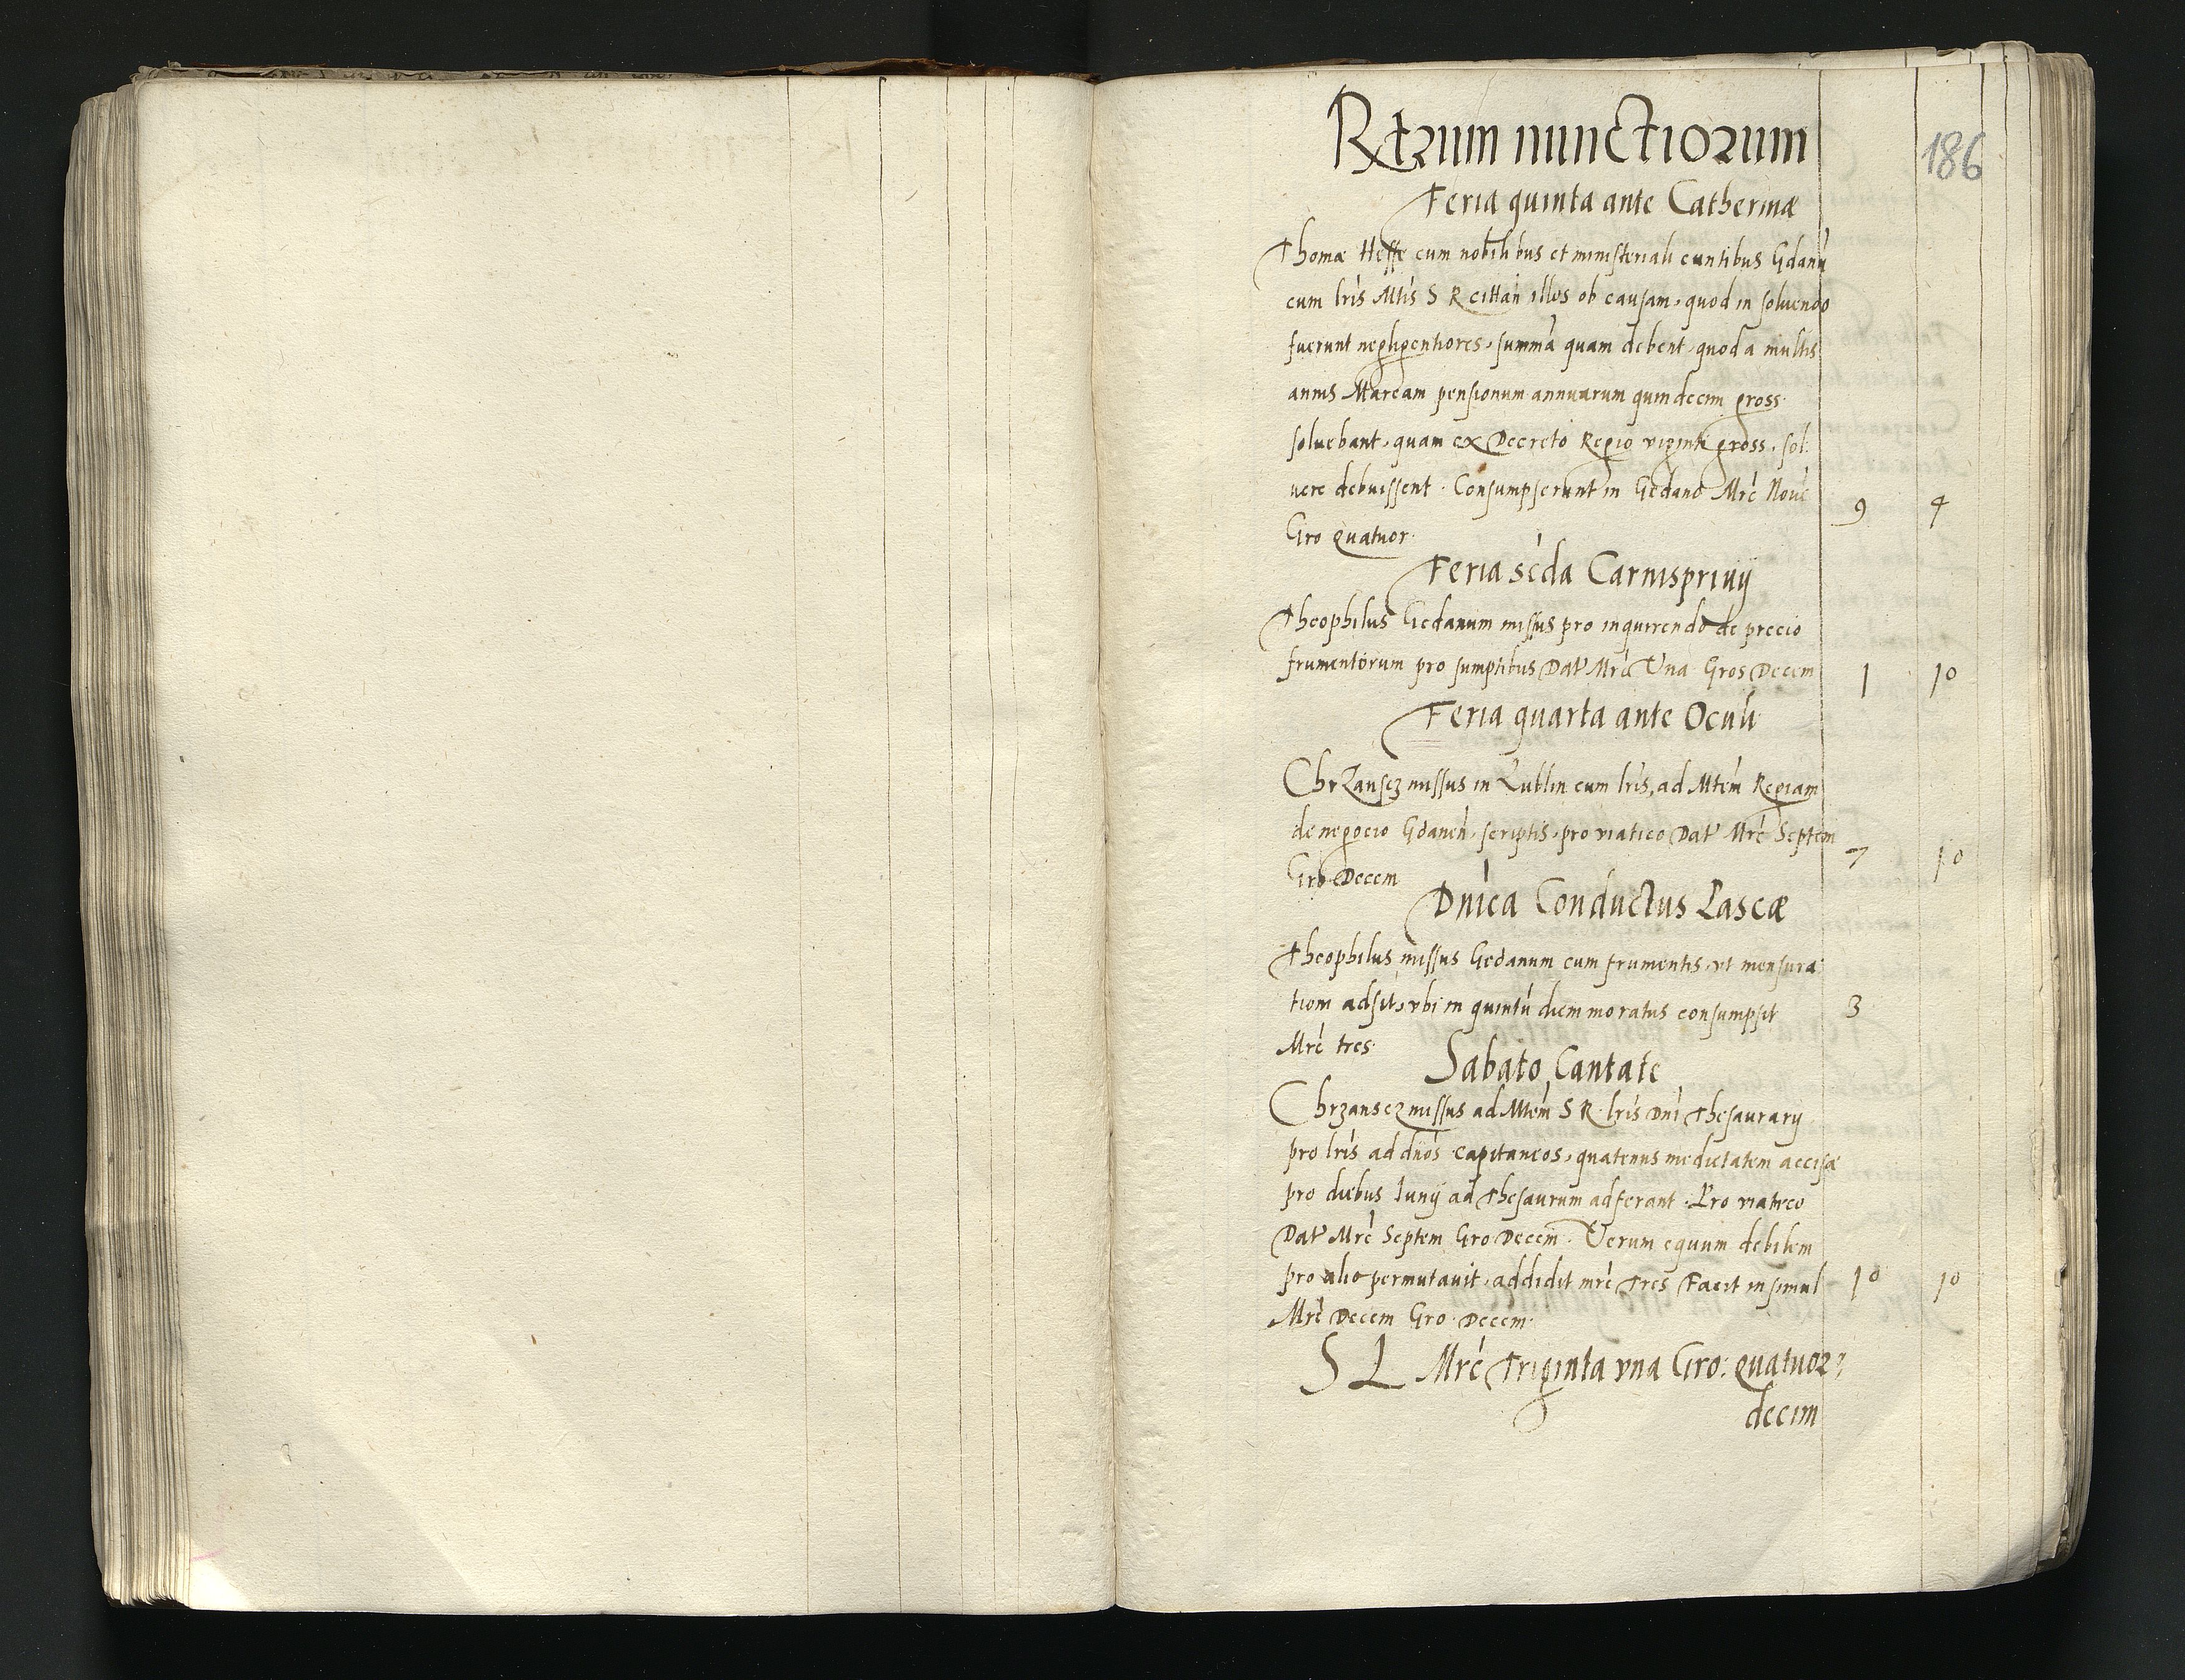 Rtrum nunctiorum
186
Feria quinta ante Catherinæ
Thomæ Hesse cum nobilibus et ministeriali euntibus Gdanū
cum lris Mtis S R cittan illos ob causam, quod in soluendo
fuerunt negligentiores, summa quam debent, quod a multis
annis Marcam pensionum annuarum quindecim gross.
soluebant, quam ex Decreto Regio viginti gross. sol:
uere debuissent. Consumpserunt in Gedano Mrc Noue 9 4
Gro quatuor.
Feria scda Carnispriuij
Theophilus Gedanum missus pro inquirendo de precio
frumentorum pro sumptibus Dat Mrc Una Gros Decem 1 10
Feria quarta ante Oculi
Chrzanscz missus in Lublin cum lris, ad Mtem Regiam
de negocio Gdanen. scriptis, pro viatico Dat Mrc Septem 7 10
Gro Decem
Dnica Conductus Pascæ
Theophilus missus Gedanum cum frumentis, vt mensura
tioni adsit, vbi in quintū diem moratus consumpsit 3
Mrc tres.
Sabato Cantate
Chrzanscz missus ad Mtem S R. lris Dni Thesaurarij
pro lris ad dnos capitaneos, quatenus medietatem accisæ
pro diebus Iunij ad Thesaurum adferant. Pro viatico
Dat Mrc Septem Gro Decem. Verum equum debilem
pro alio permutauit, addidit mrc Tres Facit in simul 10 10
Mrc Decem Gro. Decem.
S L Mrc Triginta vna Gro: quatuor:
decim